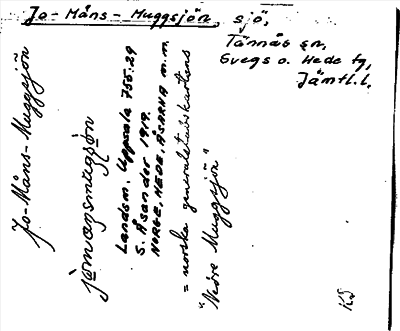 Jo-Måns-Muggsjön, sjö,
Tännäs sn,
Svegs o. Hede tg,
Jämtl.l.
Jo-Måns-Muggsjön
Landsm. Uppsala 755:29
S. Åsander 1919.
NORGE, HEDE, ÅSARNA m.m.
= norska generalstabskartans
"Nöre Muggsjön"
KS